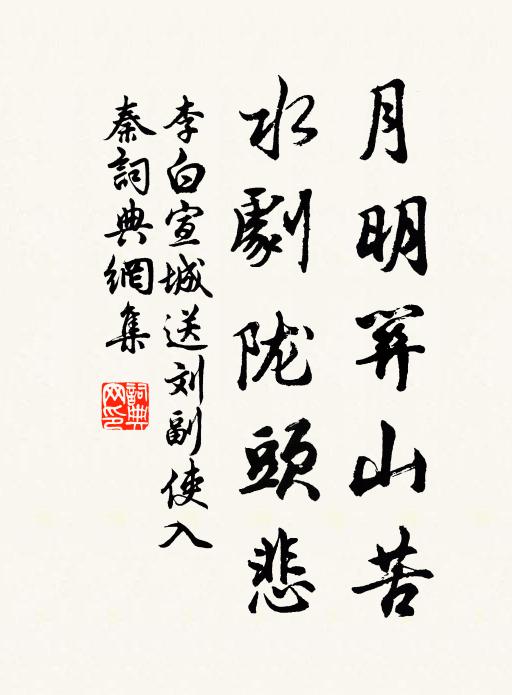 月明関山苦
水劇陇頭悲
李白宣城送刘副使入
秦詞典網集
詞典网印